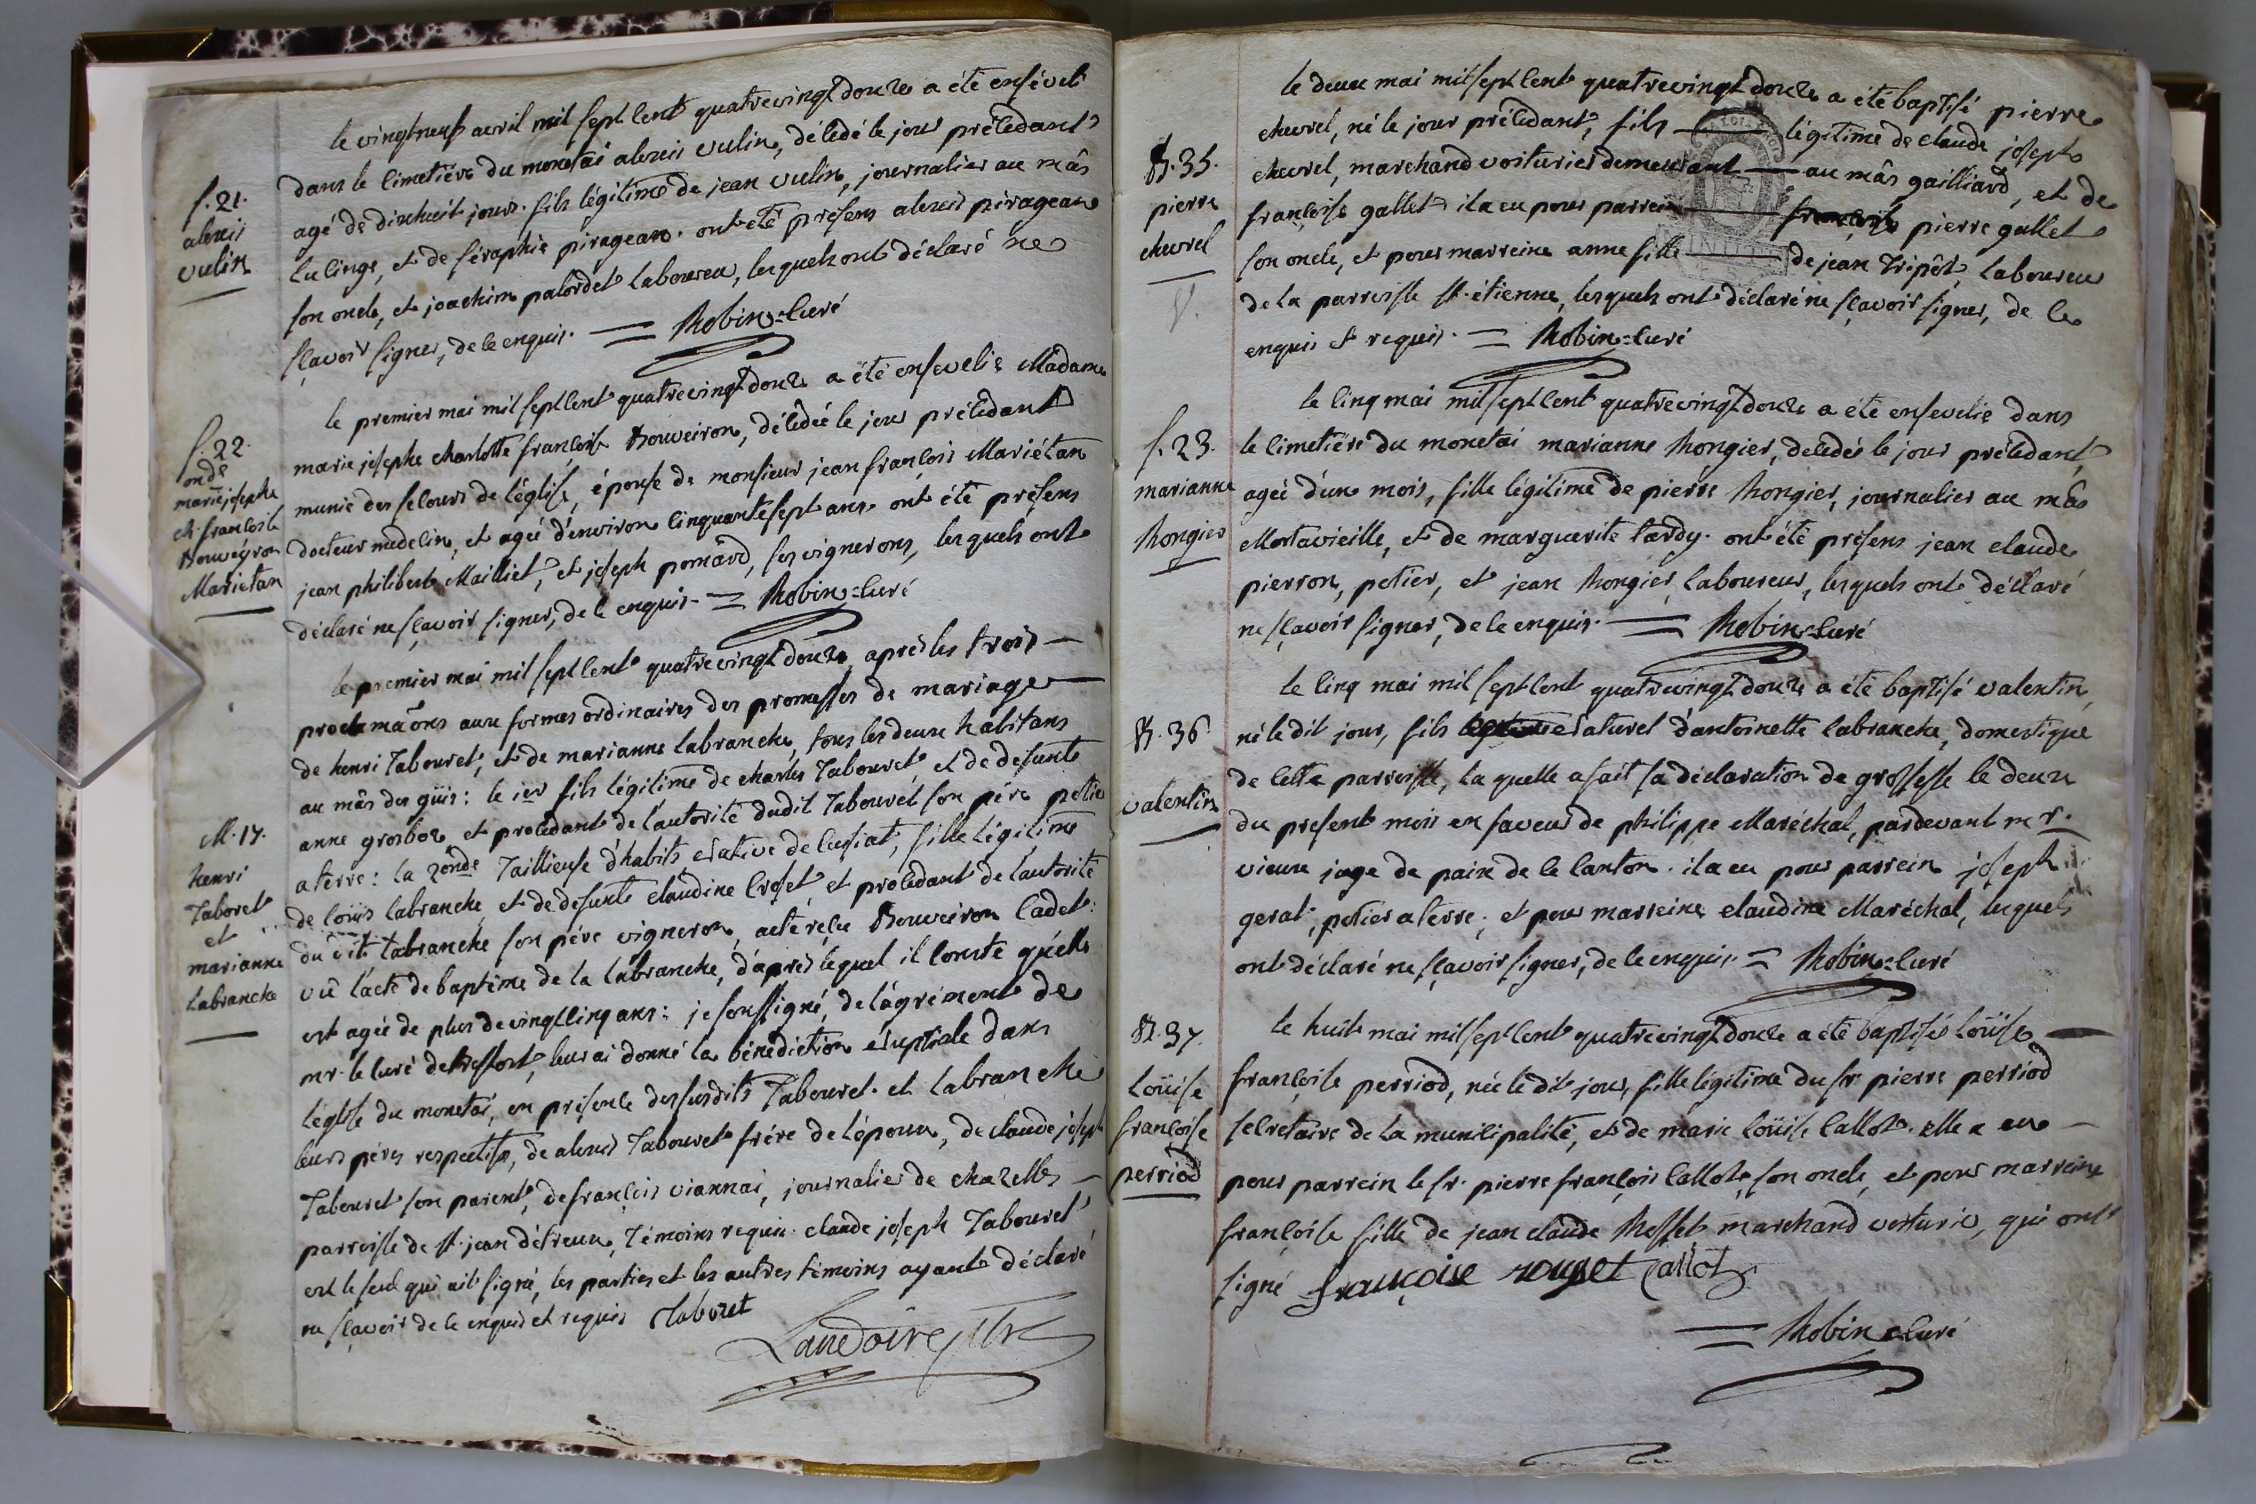 f. 21.
alexis
vulin
le vingtneuf avril mil sept cent quatrevingt douze a été enséveli
dans le cimetiére du monetai alexis vulin, décédé le jour précedant
agé de dixhuit jours. fils légitime de jean vulin, journalier au mâs
culinge, et de séraphie pirageau. ont été présens alexis pirageau
son oncle, et joachim palordet laboureu, lesquels ont déclaré ne
sçavoir signer, de ce enquis. = Robin=curé
f. 22.
onde
marie josephe
ch. françoise
Bouveyron
Marietan
le premier mai mil sept cent quatrevingt douze a été ensevelie Madame
marie josephe charlotte françoise Bouveiron, décédée le jour précédant
munie des secours de l'église, épouse de monsieur jean françois Mariétan
docteur medecin, et agée d'environ cinquante sept ans. ont été présens
jean philibert Mailliet, et joseph pomârd, ses vignerons, lesquels ont
déclaré ne sçavoir signer, de ce enquis. = Robin=curé
M. 17.
henri
Taboret
et
marianne
Labranche
le premier mai mil sept cent quatrevingt douze, après les trois
proclamaõns aux formes ordinaires des promesses de mariage
de henri Tabouret, et de marianne labranche, tous les deux habitans
au mâs des guis: le 1er fils légitime de charles Tabouret et de defunte
anne grosboz et procédant de l'autorité dudit Tabouret son pére potier
a terre: la 2onde Taillieuse d'habits native de cusiat, fille légitime
de loüis labranche, et de defunte claudine croset et procédant de l'autorité
du dit labranche son pére vigneron, acte reçu Bouveiron cadet:
vû l'acte de baptême de la labranche, d'après lequel il conste qu'elle
est agée de plus de vingt cinq ans: je soussigné, de l'agrément de
mr. le curé de Treffort, leur ai donné la bénédiction nuptiale dans
l'église du monetai, en présence des susdits Tabouret et labranche
leurs péres respectifs, de alexis Tabouret frére de l'époux, de claude joseph
Tabouret son parent, de françois viannai, journalier de chazelles
parroisse de st. jean d'étreux, témoins requis. claude joseph Tabouret
est le seul qui ait signé, les parties et les autres témoins ayant déclaré
ne sçavoir de ce enquis et requis Taboret
B. 35.
pierre
chevrel
le deux mai mil sept cent quatrevingt douze a été baptisé pierre
chevrel, né le jour précédant, fils légitime de claude joseph
chevrel, marchand voiturier demeurant au mâs gailliard, et de
françoise gallet. il a eu pour parrein françois pierre gallet
son oncle, et pour marreine anne fille de jean Tripôt, laboureur
de la parroisse st. étienne, lesquels ont déclaré ne sçavoir signer, de ce
enquis et requis. = Robin=curé
f. 23.
marianne
Rongier
le cinq mai mil sept cent quatrevingt douze a été ensevelie dans
le cimetiére du monetai marianne Rongier, décédée le jour précédant,
agée d'un mois, fille légitime de pierre Rongier, journalier au mâs
Mortavieille, et de marguerite tardy. ont été présens jean claude
pierron, potier, et jean Rongier, laboureur, lesquels ont déclaré
ne sçavoir signer, de ce enquis. = Robin=curé
B. 36
valentin
le cinq mai mil sept cent quatrevingt douze a été baptisé valentin,
né le dit jour, fils naturel d'antoinette labranche, domestique
de cette parroisse, laquelle a fait sa déclaration de grossesse le deux
du present mois en faveur de philippe Maréchal, pardevant mr.
vieux juge de paix de ce canton. il a eu pour parrein joseph
gerat, potier a terre, et pour marreine claudine Maréchal, lesquels
ont déclaré ne sçavoir signer, de ce enquis. = Robin=curé
B. 37.
Loüise
françoise
perriod
le huit mai mil sept cent quatrevingt douze a été baptisée loüise
françoise perriod, née le dit jour, fille légitime du sr. pierre perriod
secretaire de la municipalité, et de marie loüise callot. elle a eu
pour parrein le sr. pierre françois callot, son oncle, et pour marreine
françoise fille de jean claude Rosset marchand voiturier, qui ont
signé françoise rouget Callot
= Robin curé